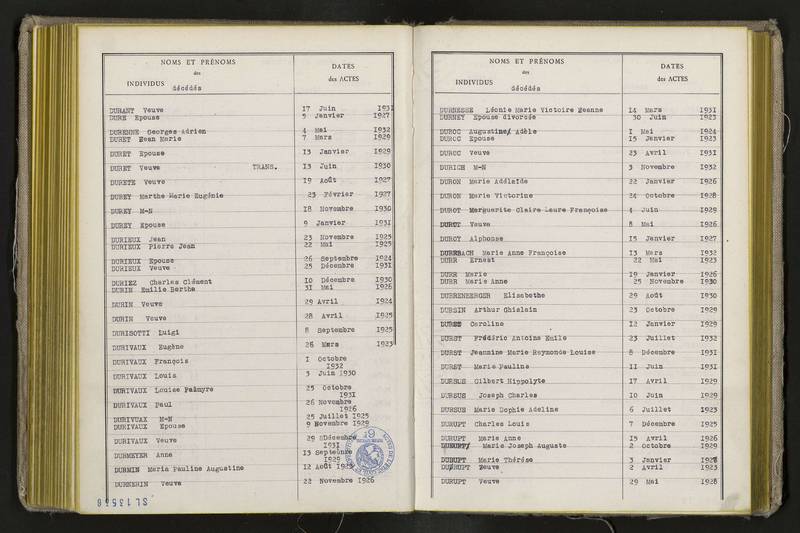 NOMS ET PRÉNOMS
des
INDIVIDUS décédés
DATES
des ACTES
DURANT Veuve 17 Juin 1931
DURE Epouse 5 Janvier 1927
DURENNE Georges Adrien 4 Mai 1932
DURET Jean Marie 7 Mars 1929
DURET Epouse 13 Janvier 1929
DURET Veuve TRANS. 13 Juin 1930
DURETE Veuve 19 Août 1927
DUREY Marthe Marie Eugénie 23 Février 1927
DUREY M-N 18 Novembre 1930
DUREY Epouse 9 Janvier 1931
DURIEUX Jean 23 Novembre 1925
DURIEUX Pierre Jean 22 Mai 1925
DURIEUX Epouse 26 Septembre 1924
DURIEUX Veuve 25 Décembre 1931
DURIEZ Charles Clément 10 Décembre 1930
DURIN Emilie Berthe 31 Mai 1926
DURIN Veuve 29 Avril 1924
DURIN Veuve 28 Avril 1925
DURISOTTI Luigi 8 Septembre 1925
DURIVAUX Eugène 26 Mars 1923
DURIVAUX François 1 Octobre 1932
DURIVAUX Louis 3 Juin 1930
DURIVAUX Louise Palmyre 25 Octobre 1931
DURIVAUX Paul 26 Novembre 1926
DURIVUAX M-N 25 Juillet 1925
DURIVAUX Epouse 9 Novembre 1929
DURIVAUX Veuve 29 Décembre 1931
DURMEYER Anne 13 Septembre 1929
DURMIN Maria Pauline Augustine 12 Août
DURNERIN Veuve 22 Novembre 1926
SL13538
NOMS ET PRÉNOMS
des
INDIVIDUS décédés
DATES
des ACTES
DURNESSE Léonie Marie Victoire Jeanne 14 Mars 1931
DURNEY Epouse divorcée 30 Juin 1923
DUROC Augustine Adèle 1 Mai 1924
DUROC Epouse 15 Janvier 1923
DUROC Veuve 23 Avril 1931
DURICH M-N 3 Novembre 1932
DURON Marie Adélaïde 22 Janvier 1926
DURON Marie Victorine 24 Octobre 1928
DUROT Marguerite Claire Laure Françoise 4 Juin 1929
DUROT Veuve 8 Mai 1926
DUROT Alphonse 15 Janvier 1927
DURRBACH Marie Anne Françoise 13 Mars 1932
DURR Ernest 22 Mai 1923
DURR Marie 19 Janvier 1926
DURR Marie Anne 25 Novembre 1930
DURRENBERGER Elisabethe 29 Août 1930
DURSIN Arthur Ghislain 23 Octobre 1929
Caroline 12 Janvier 1929
DURST Frédéric Antoine Emile 23 Juillet 1932
DURST Jeannine Marie Raymonde Louise 8 Décembre 1931
DURST Marie Pauline 11 Juin 1931
DURSUS Gilbert Hippolyte 17 Avril 1929
DURSUS Joseph Charles 10 Juin 1929
DURSUS Marie Sophie Adeline 6 Juillet 1923
DURUPT Charles Louis 7 Décembre 1925
DURUPT Marie Anne 15 Avril 1926
DURUPT Marie Joseph Auguste 2 Octobre 1929
DURUPT Marie Thérèse 3 Janvier
DURUPT Veuve 2 Avril 1923
DURUPT Veuve 29 Mai 1928